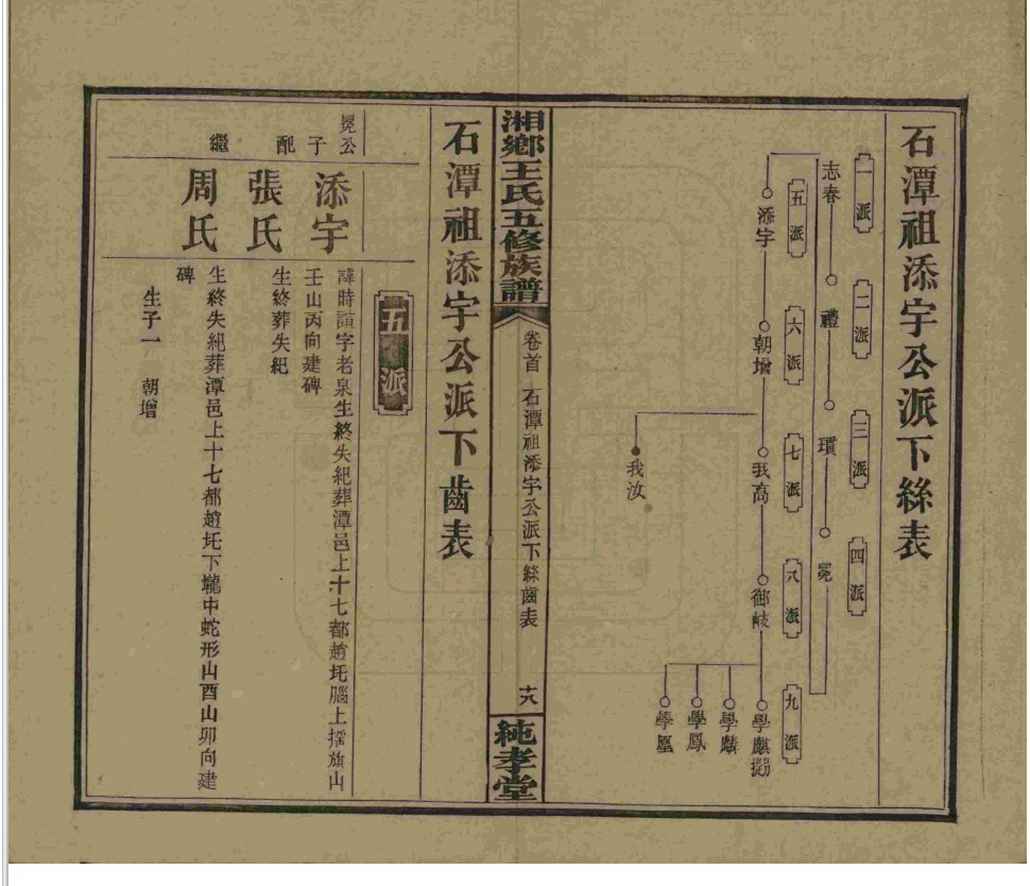 石潭祖添宇公派下絲表
一派
二派
三派
四派
志春
禮
環
冕
五派
六派
七派
八派
九派
添宇
朝增
我高
御岐
學麒
我汝
學麟
學鳳
學凰
湘鄉王氏五修族譜
卷首
石潭祖添宇公派下絲齒表
十八
純孝堂
石潭祖添宇公派下齒表
五派
冕公子
添宇
諱時
字老泉生終失紀葬潭邑上十七都趙坑腦上擂旗山
壬山丙向建碑
配
張氏
生終葬失紀
繼
周氏
生終失紀葬潭邑上十七都趙坑下壠中蛇形山酉山卯向建
碑
生子一 朝增